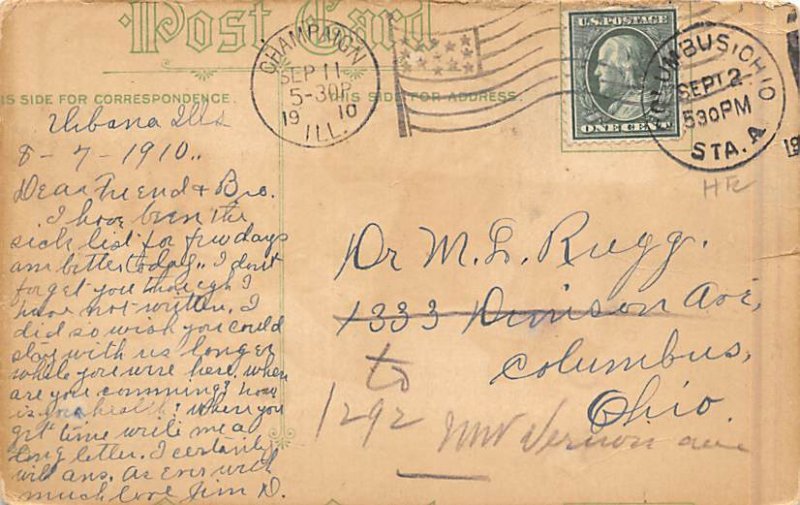 Post Card
CHAMPAIGN
SEP 11
5-30P
1910
ILL.
U.S. POSTAGE
ONE CENT
COLUMBUS, OHIO
SEP 12
530PM
STA. A
19
IS SIDE FOR CORRESPONDENCE.
THIS SIDE FOR ADDRESS.
Urbana Ills
8-7-1910..
Dear Friend & Bro.
I have been on the
sick list for few days
am better today.. I don't
forget you though I
have not written. I
did so wish you could
stay with us longer
while you wire here. when
are you comming? how
is your health? When you
get time write me a
long letter. I certainly
will ans. As Ever with
much love Jim D.
Dr M. L. Rugg.
1333 Dennison Ave,
Columbus,
Ohio.
to
1292 Mt Vernon ave